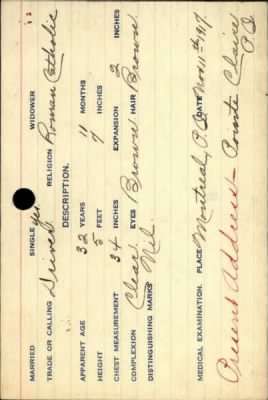 MARRIED SINGLE yes WIDOWER
TRADE OR CALLING Driver RELIGION Roman Catholic
DESCRIPTION.
APPARENT AGE 32 YEARS 11 MONTHS
HEIGHT 5 FEET 7 INCHES
CHEST MEASUREMENT 34 INCHES EXPANSION 2 INCHES
COMPLEXION Clear EYES Brown HAIR Brown
DISTINGUISHING MARKS Nil.
MEDICAL EXAMINATION. PLACE Montreal, P.Q. DATE Nov. 11th, 1917.
Present Address - Pointe Claire
P.Q.